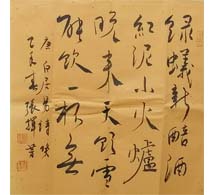 绿蚁新醅酒
红泥小火炉
晚来天欲雪
能饮一杯无
唐白居易诗
张辉书